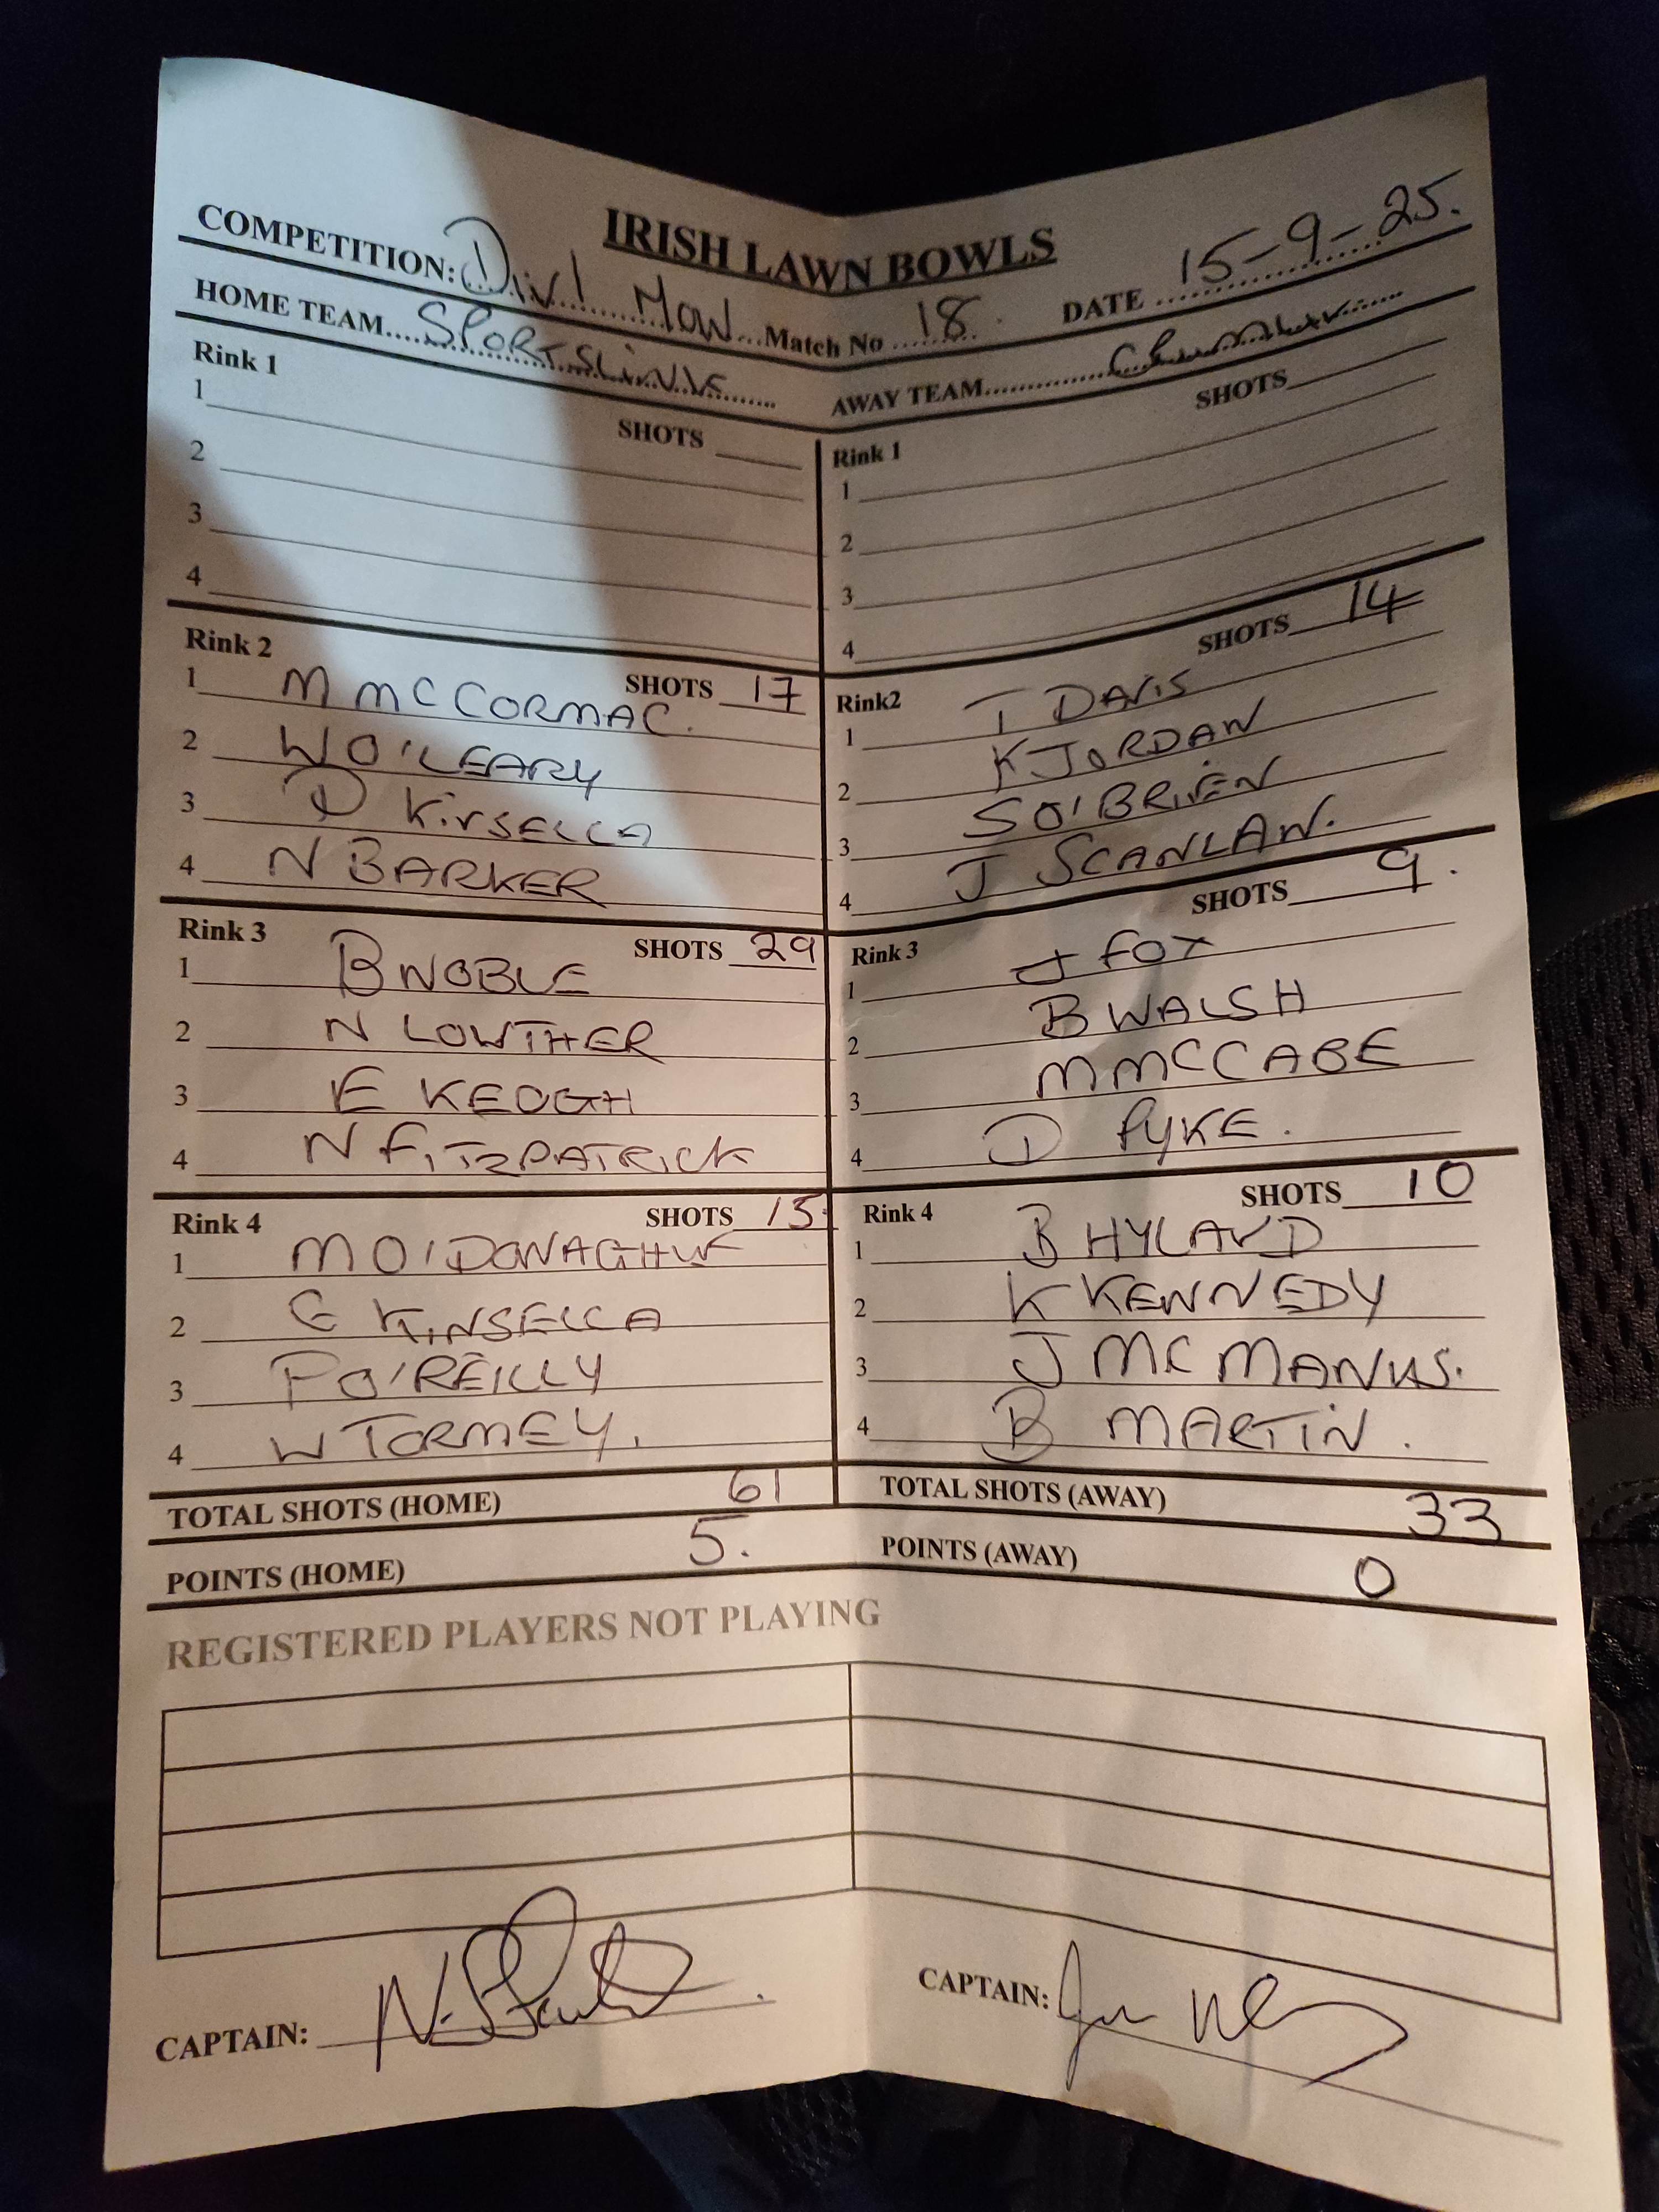 IRISH LAWN BOWLS
COMPETITION: Div 1 Mow Match No 18. DATE 15-9-25.
HOME TEAM SPORTSLINK
AWAY TEAM
Rink 1
SHOTS
1
2
3
4
Rink 1
SHOTS
1
2
3
4
Rink 2
SHOTS 17
1 M MCCORMAC.
2 W O'LEARY
3 D KiNSELLA
4 N BARKER
Rink2
SHOTS 14
1 T DAVIS
2 K JORDAN
3 S O'BRIEN
4 J SCANLAN.
Rink 3
SHOTS 29
1 B NOBLE
2 N LOWTHER
3 E KEOGH
4 N FITZPATRICK
Rink 3
SHOTS 9.
1 J FOX
2 B WALSH
3 M MCCABE
4 D PYKE.
Rink 4
SHOTS 15
1 M O'DONAGHUE
2 KINSELLA
3 P O'REILLY
4 W TORMEY.
Rink 4
SHOTS 10
1 B HYLAND
2 K KENNEDY
3 J MCMANUS.
4 B MARTIN.
TOTAL SHOTS (HOME) 61
TOTAL SHOTS (AWAY) 33
POINTS (HOME) 5.
POINTS (AWAY) 0
REGISTERED PLAYERS NOT PLAYING
CAPTAIN:
CAPTAIN: